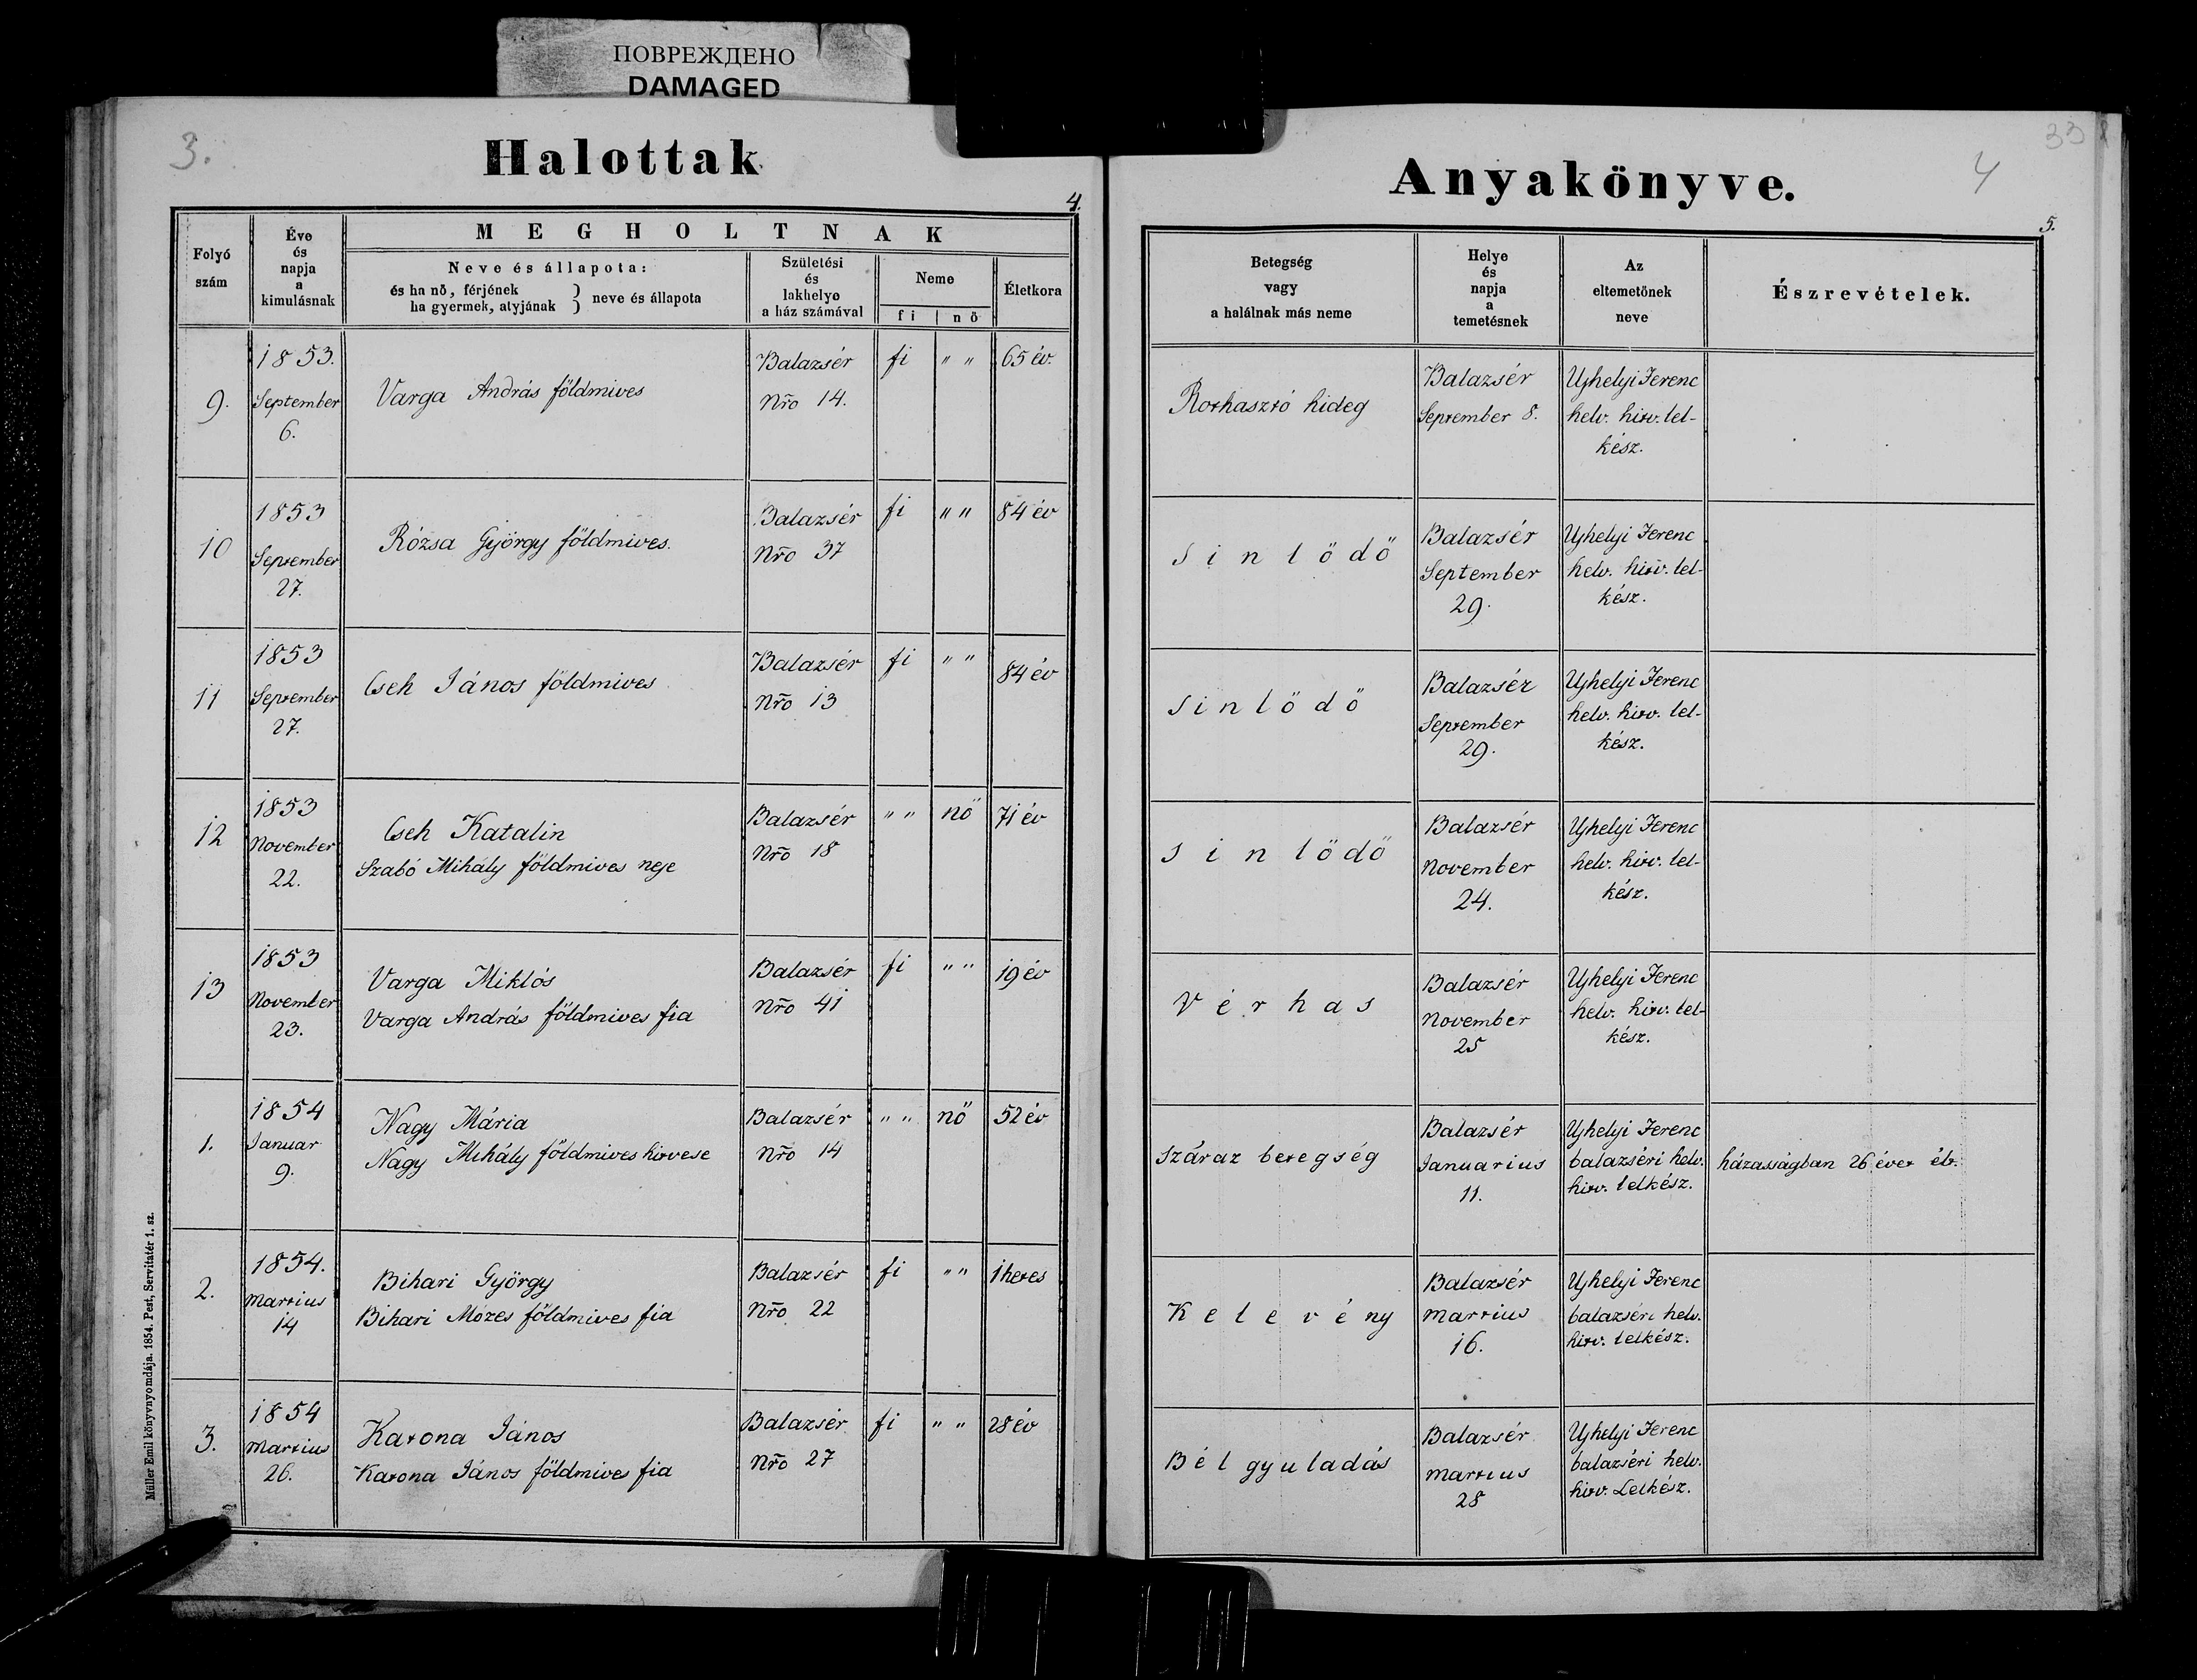 ПОВРЕЖДЕНО
DAMAGED
3.
Halottak
4.
Folyó
szám
Éve
és
napja
a
kimulásnak
MEGHOLTNAK
Neve és állapota:
és ha nő, férjének
ha gyermek, atyjának } neve és állapota
Születési
és
lakhelye
a ház számával
Neme
fi nő
Életkora
9.
1853.
September
6.
Varga András földmives
Balazsér
Nro 14.
fi
" "
65 év.
10
1853
September
27.
Rózsa György földmives.
Balazsér
Nro 37
fi
" "
84 év
11
1853
September
27.
Cseh János földmives
Balazsér
Nro 13
fi
" "
84 év
12
1853
November
22.
Cseh Katalin
Szabó Mihály földmives neje
Balazsér
Nro 18
" "
nő
71 év
13
1853
November
23.
Varga Miklós
Varga András földmives fia
Balazsér
Nro 41
fi
" "
19 év
1.
1854
Januar
9.
Nagy Mária
Nagy Mihály földmives hitvese
Balazsér
Nro 14
" "
nő
52 év
2.
1854.
Martius
14
Bihari György
Bihari Mózes földmives fia
Balazsér
Nro 22
fi
" "
1 hetes
3.
1854
Martius
26.
Katona János
Katona János földmives fia
Balazsér
Nro 27
fi
" "
28 év
Müller Emil könyvnyomdája. 1854. Pest, Servitatér 1. sz.
33
4
Anyakönyve.
5.
Betegség
vagy
a halálnak más neme
Helye
és
napja
a
temetésnek
Az
eltemetőnek
neve
Észrevételek.
Rothasztó hideg
Balazsér
September 8.
Ujhelyi Ferenc
helv. hitv. lel-
kész.
Sinlődő
Balazsér
September
29.
Ujhelyi Ferenc
helv. hitv. lel-
kész.
Sinlődő
Balazsér
September
29.
Ujhelyi Ferenc
helv. hitv. lel-
kész.
Sinlődő
Balazsér
November
24.
Ujhelyi Ferenc
helv. hitv. lel-
kész.
Vérhas
Balazsér
November
25
Ujhelyi Ferenc
helv. hitv. lel-
kész.
Száraz betegség
Balazsér
Januarius
11.
Ujhelyi Ferenc
balazséri helv.
hitv. lelkész.
házasságban 26 évet élt.
Kelevény
Balazsér
Martius
16.
Ujhelyi Ferenc
balazséri helv.
hitv. lelkész.
Bél gyuladás
Balazsér
Martius
28
Ujhelyi Ferenc
balazséri helv.
hitv. Lelkész.